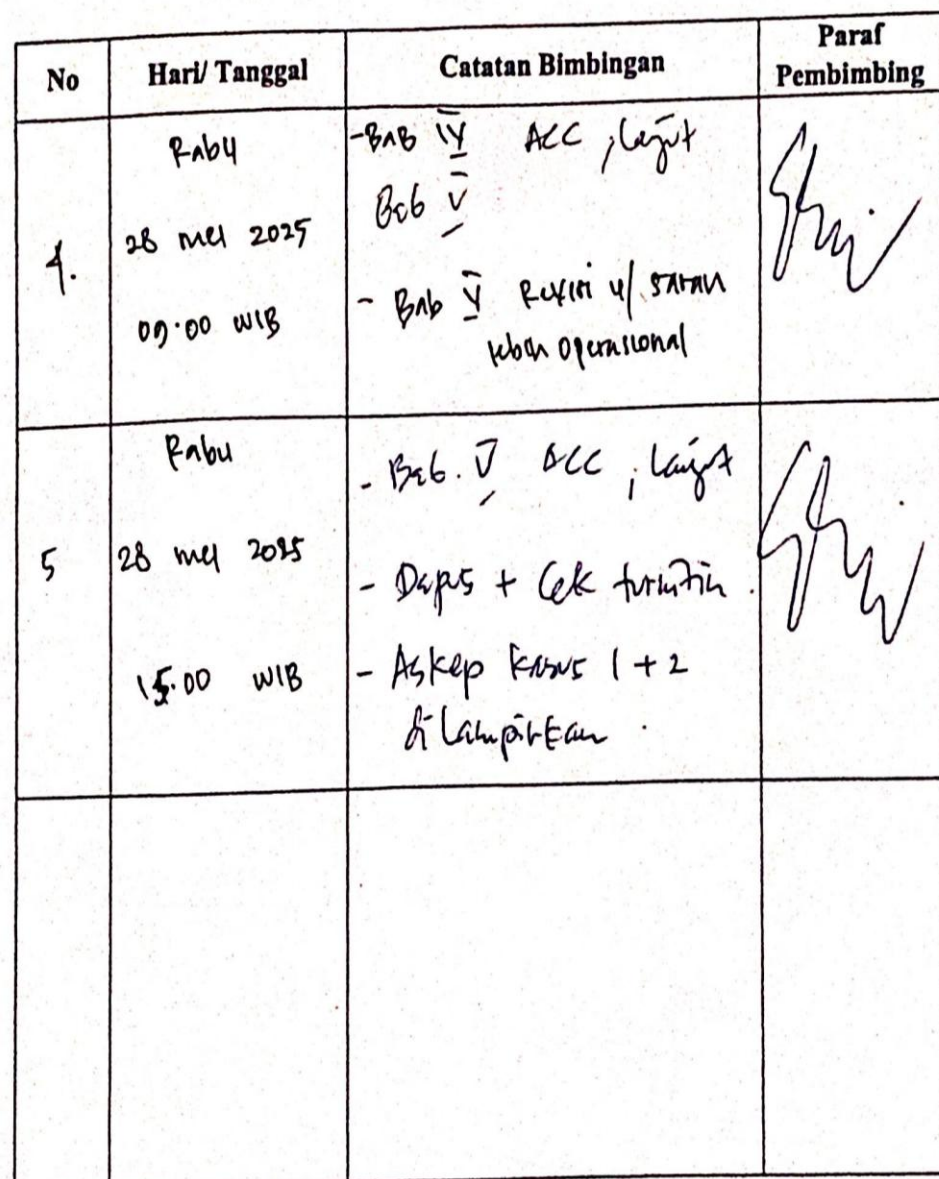 No
Hari/ Tanggal
Catatan Bimbingan
Paraf
Pembimbing
4.
Rabu
28 mei 2025
09.00 WIB
- BAB IV ACC, lanjut
Bab V
- Bab V Revisi u/ saran
lebih operasional
5
Rabu
28 mei 2025
15.00 WIB
- Bab. V ACC, lanjut
- Dapus + Cek turnitin.
- Askep kasus 1 + 2
di lampirkan.